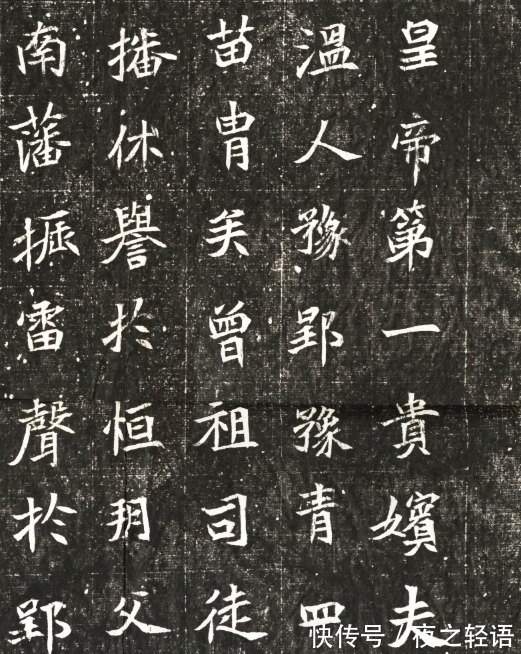 皇帝第一貴嬪夫
溫人豫郢豫青四
苗胄矣曾祖司徒
播休譽於恒朔父
南藩振雷聲於郢
快传号/夜之轻语